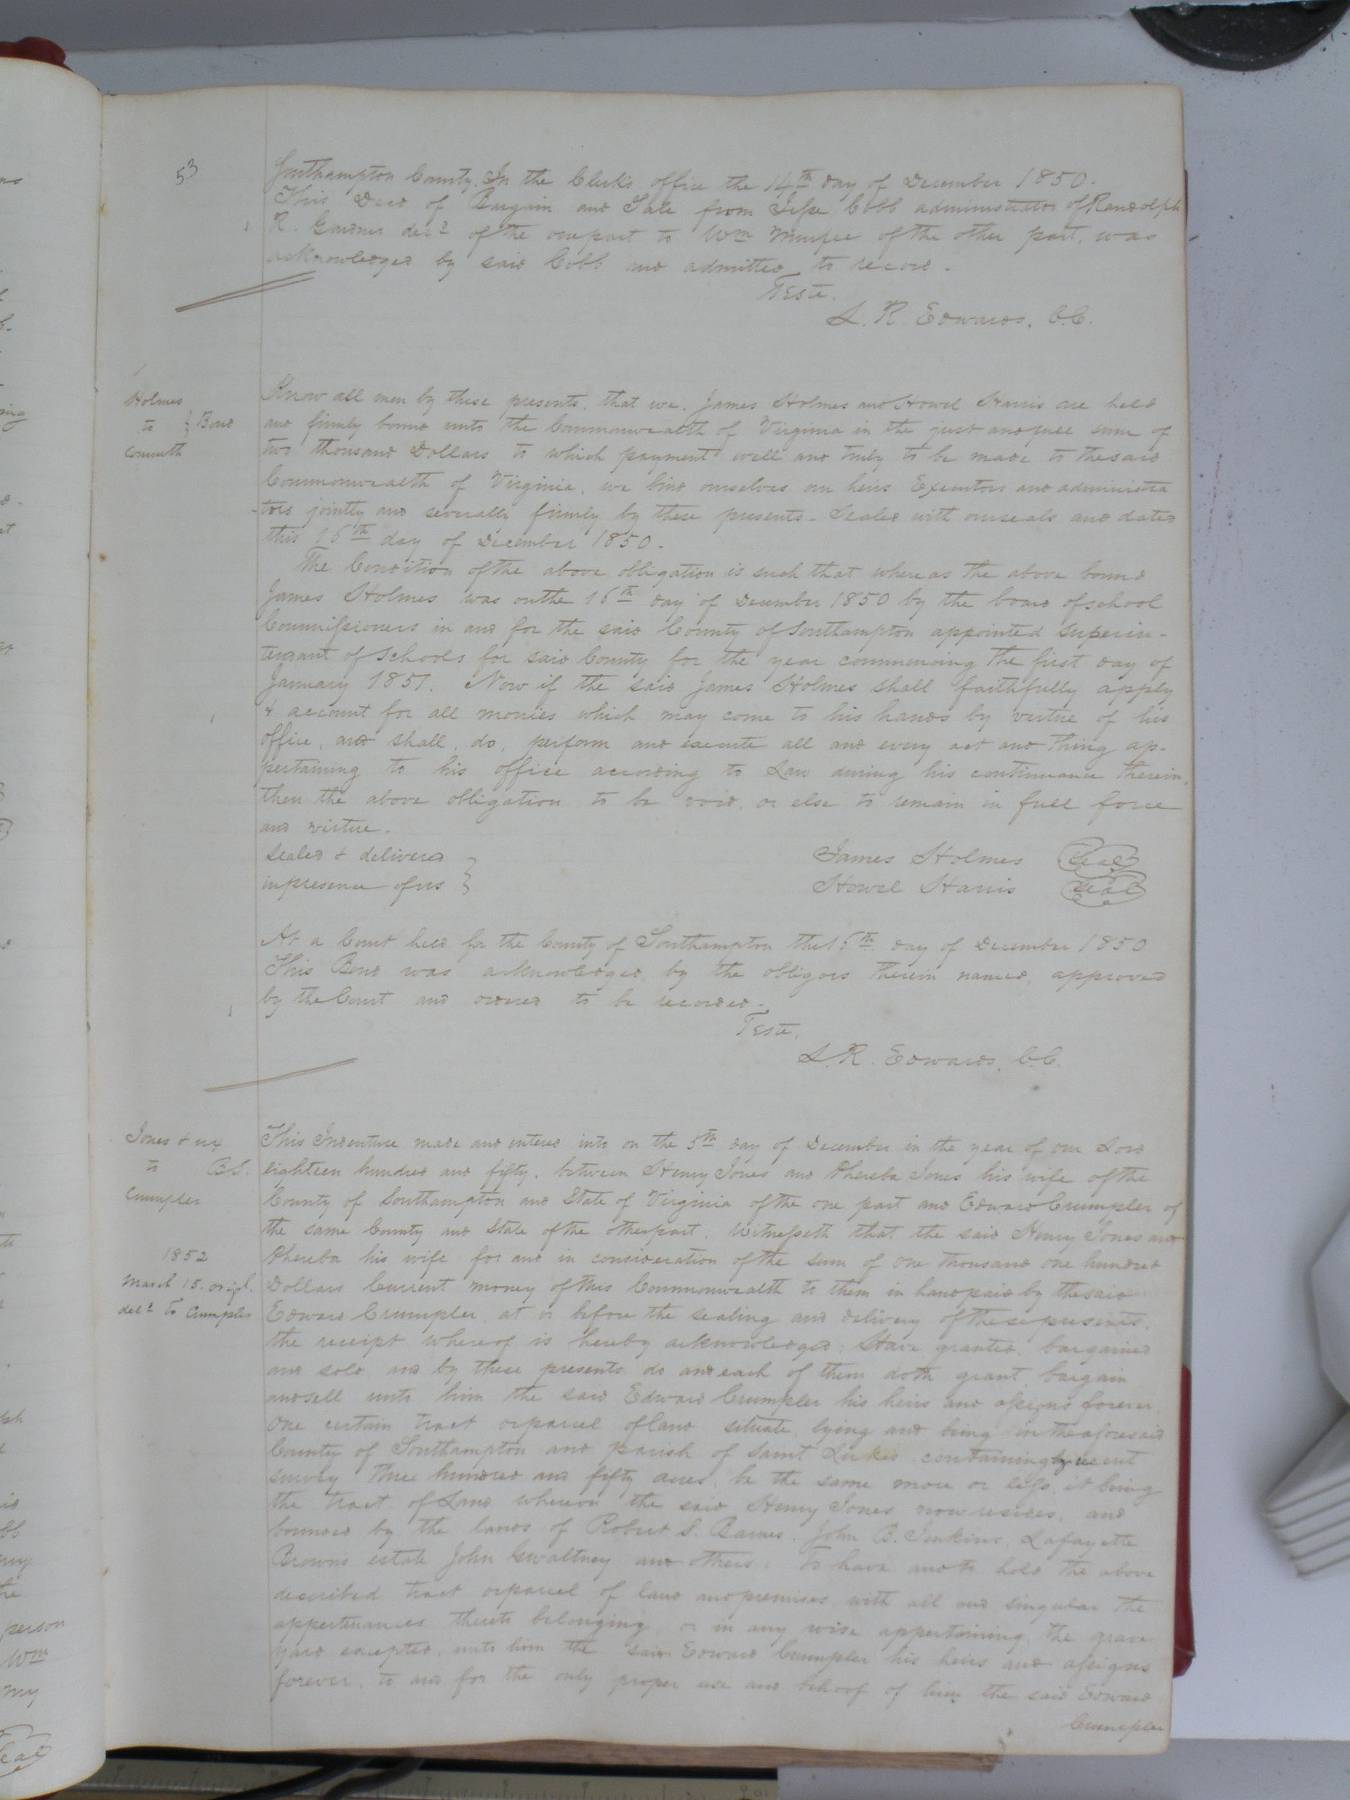 53
Southampton County, In the Clerk's office the 14th day of December 1850.
This Deed of Bargain and Sale from Jesse Cobb administrator of Randolph
R. Gardner decd of the one part to Wm Murfee of the other part, was
acknowledged by said Cobb and admitted to record.
Teste.
L. R. Edwards, C.C.
Holmes
to } Bond
Comwth
Know all men by these presents, that we, James Holmes and Howel Harris are held
and firmly bound unto the Commonwealth of Virginia in the just and full sum of
two thousand Dollars to which payment well and truly to be made to the said
Commonwealth of Virginia, we bind ourselves our heirs Executors and administra
-tors jointly and severally firmly by these presents. Sealed with our seals and dated
this 16th day of December 1850.
The Condition of the above obligation is such that whereas the above bound
James Holmes was on the 16th day of December 1850 by the board of school
Commissioners in and for the said County of Southampton appointed superin-
tendant of schools for said County for the year commencing the first day of
January 1851. Now if the said James Holmes shall faithfully apply
& account for all monies which may come to his hands by virtue of his
office, and shall, do, perform and execute all and every act and thing ap-
pertaining to his office according to Law during his continuance therein,
then the above obligation to be void, or else to remain in full force
and virtue.
Sealed & delivered }
in presence of us }
James Holmes (Seal)
Howel Harris (Seal)
At a Court held for the County of Southampton the 16th day of December 1850
This Bond was acknowledged by the obligors therein named, approved
by the Court and ordered to be recorded.
Teste.
L. R. Edwards, C.C.
Jones & ux
to B.S.
Crumpler
1852
March 15. origl.
deld to Crumpler
This Indenture made and entered into on the 5th day of December in the year of our Lord
eighteen hundred and fifty, between Henry Jones and Phereba Jones his wife of the
County of Southampton and State of Virginia of the one part and Edward Crumpler of
the same County and State of the other part. Witnesseth that the said Henry Jones and
Phereba his wife for and in consideration of the sum of one thousand one hundred
Dollars Current money of this Commonwealth to them in hand paid by the said
Edward Crumpler, at or before the sealing and delivery of these presents,
the receipt whereof is hereby acknowledged; Have granted, bargained
and sold and by these presents do and each of them doth grant, bargain
and sell unto him the said Edward Crumpler his heirs and assigns forever,
One certain tract or parcel of land situate, lying and being in the aforesaid
County of Southampton and parish of Saint Lukes containing by recent
survey three hundred and fifty acres, be the same more or less, it being
the tract of Land whereon the said Henry Jones now resides, and
bounded by the lands of Robert S. Barnes, John B. Jenkins, Lafayette
Browns estate John Gwaltney and others. To have and to hold the above
described tract or parcel of land and premises with all and singular the
appertenances thereto belonging, or in any wise appertaining, the grave
yard excepted, unto him the said Edward Crumpler his heirs and assigns
forever, to and for the only proper use and behoof of him the said Edward
Crumpler